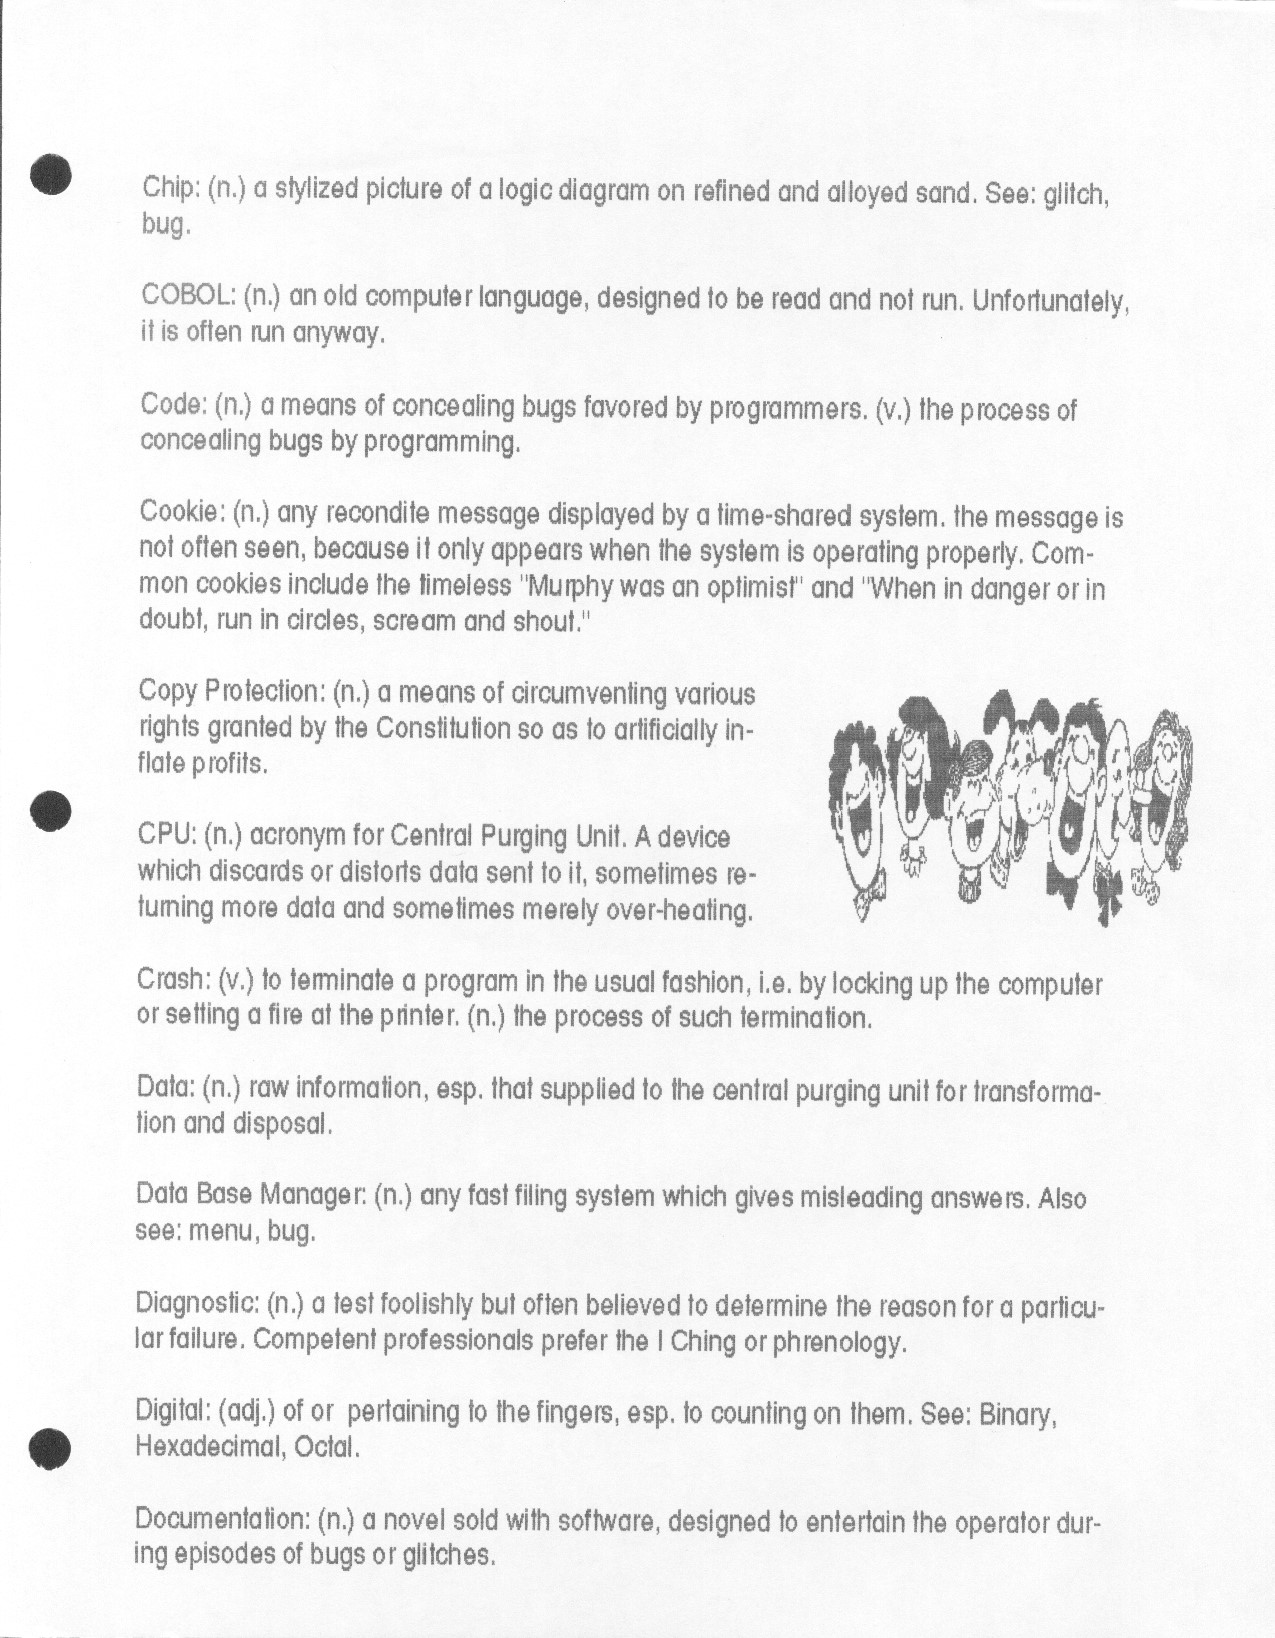 Chip: (n.) a stylized picture of a logic diagram on refined and alloyed sand. See: glitch,
bug.
COBOL: (n.) an old computer language, designed to be read and not run. Unfortunately,
it is often run anyway.
Code: (n.) a means of concealing bugs favored by programmers. (v.) the process of
concealing bugs by programming.
Cookie: (n.) any recondite message displayed by a time-shared system. the message is
not often seen, because it only appears when the system is operating properly. Com-
mon cookies include the timeless "Murphy was an optimist" and "When in danger or in
doubt, run in circles, scream and shout."
Copy Protection: (n.) a means of circumventing various
rights granted by the Constitution so as to artificially in-
flate profits.
CPU: (n.) acronym for Central Purging Unit. A device
which discards or distorts data sent to it, sometimes re-
turning more data and sometimes merely over-heating.
Crash: (v.) to terminate a program in the usual fashion, i.e. by locking up the computer
or setting a fire at the printer. (n.) the process of such termination.
Data: (n.) raw information, esp. that supplied to the central purging unit for transforma-
tion and disposal.
Data Base Manager: (n.) any fast filing system which gives misleading answers. Also
see: menu, bug.
Diagnostic: (n.) a test foolishly but often believed to determine the reason for a particu-
lar failure. Competent professionals prefer the I Ching or phrenology.
Digital: (adj.) of or pertaining to the fingers, esp. to counting on them. See: Binary,
Hexadecimal, Octal.
Documentation: (n.) a novel sold with software, designed to entertain the operator dur-
ing episodes of bugs or glitches.